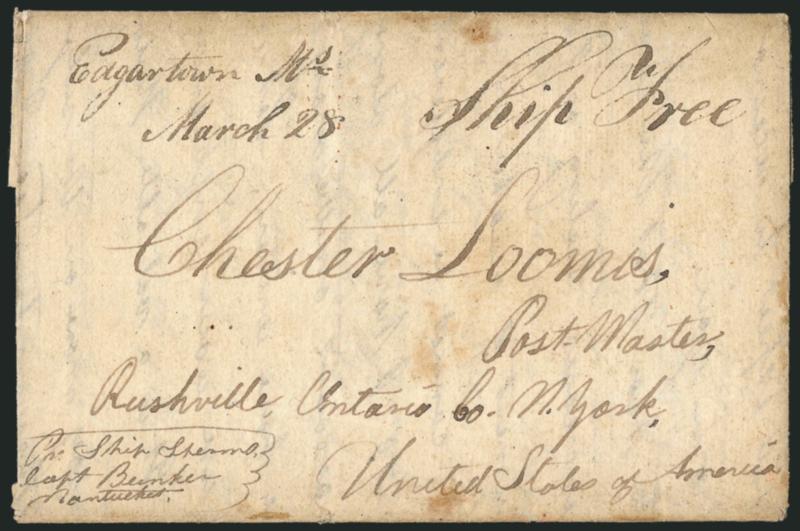 Edgartown Ms.
March 28
Ship Free
Chester Loomis,
Post-Master,
Rushville, Ontario Co. N. York,
United States of America
Pr. Ship Thermo,
Capt Bunker
Nantucket.